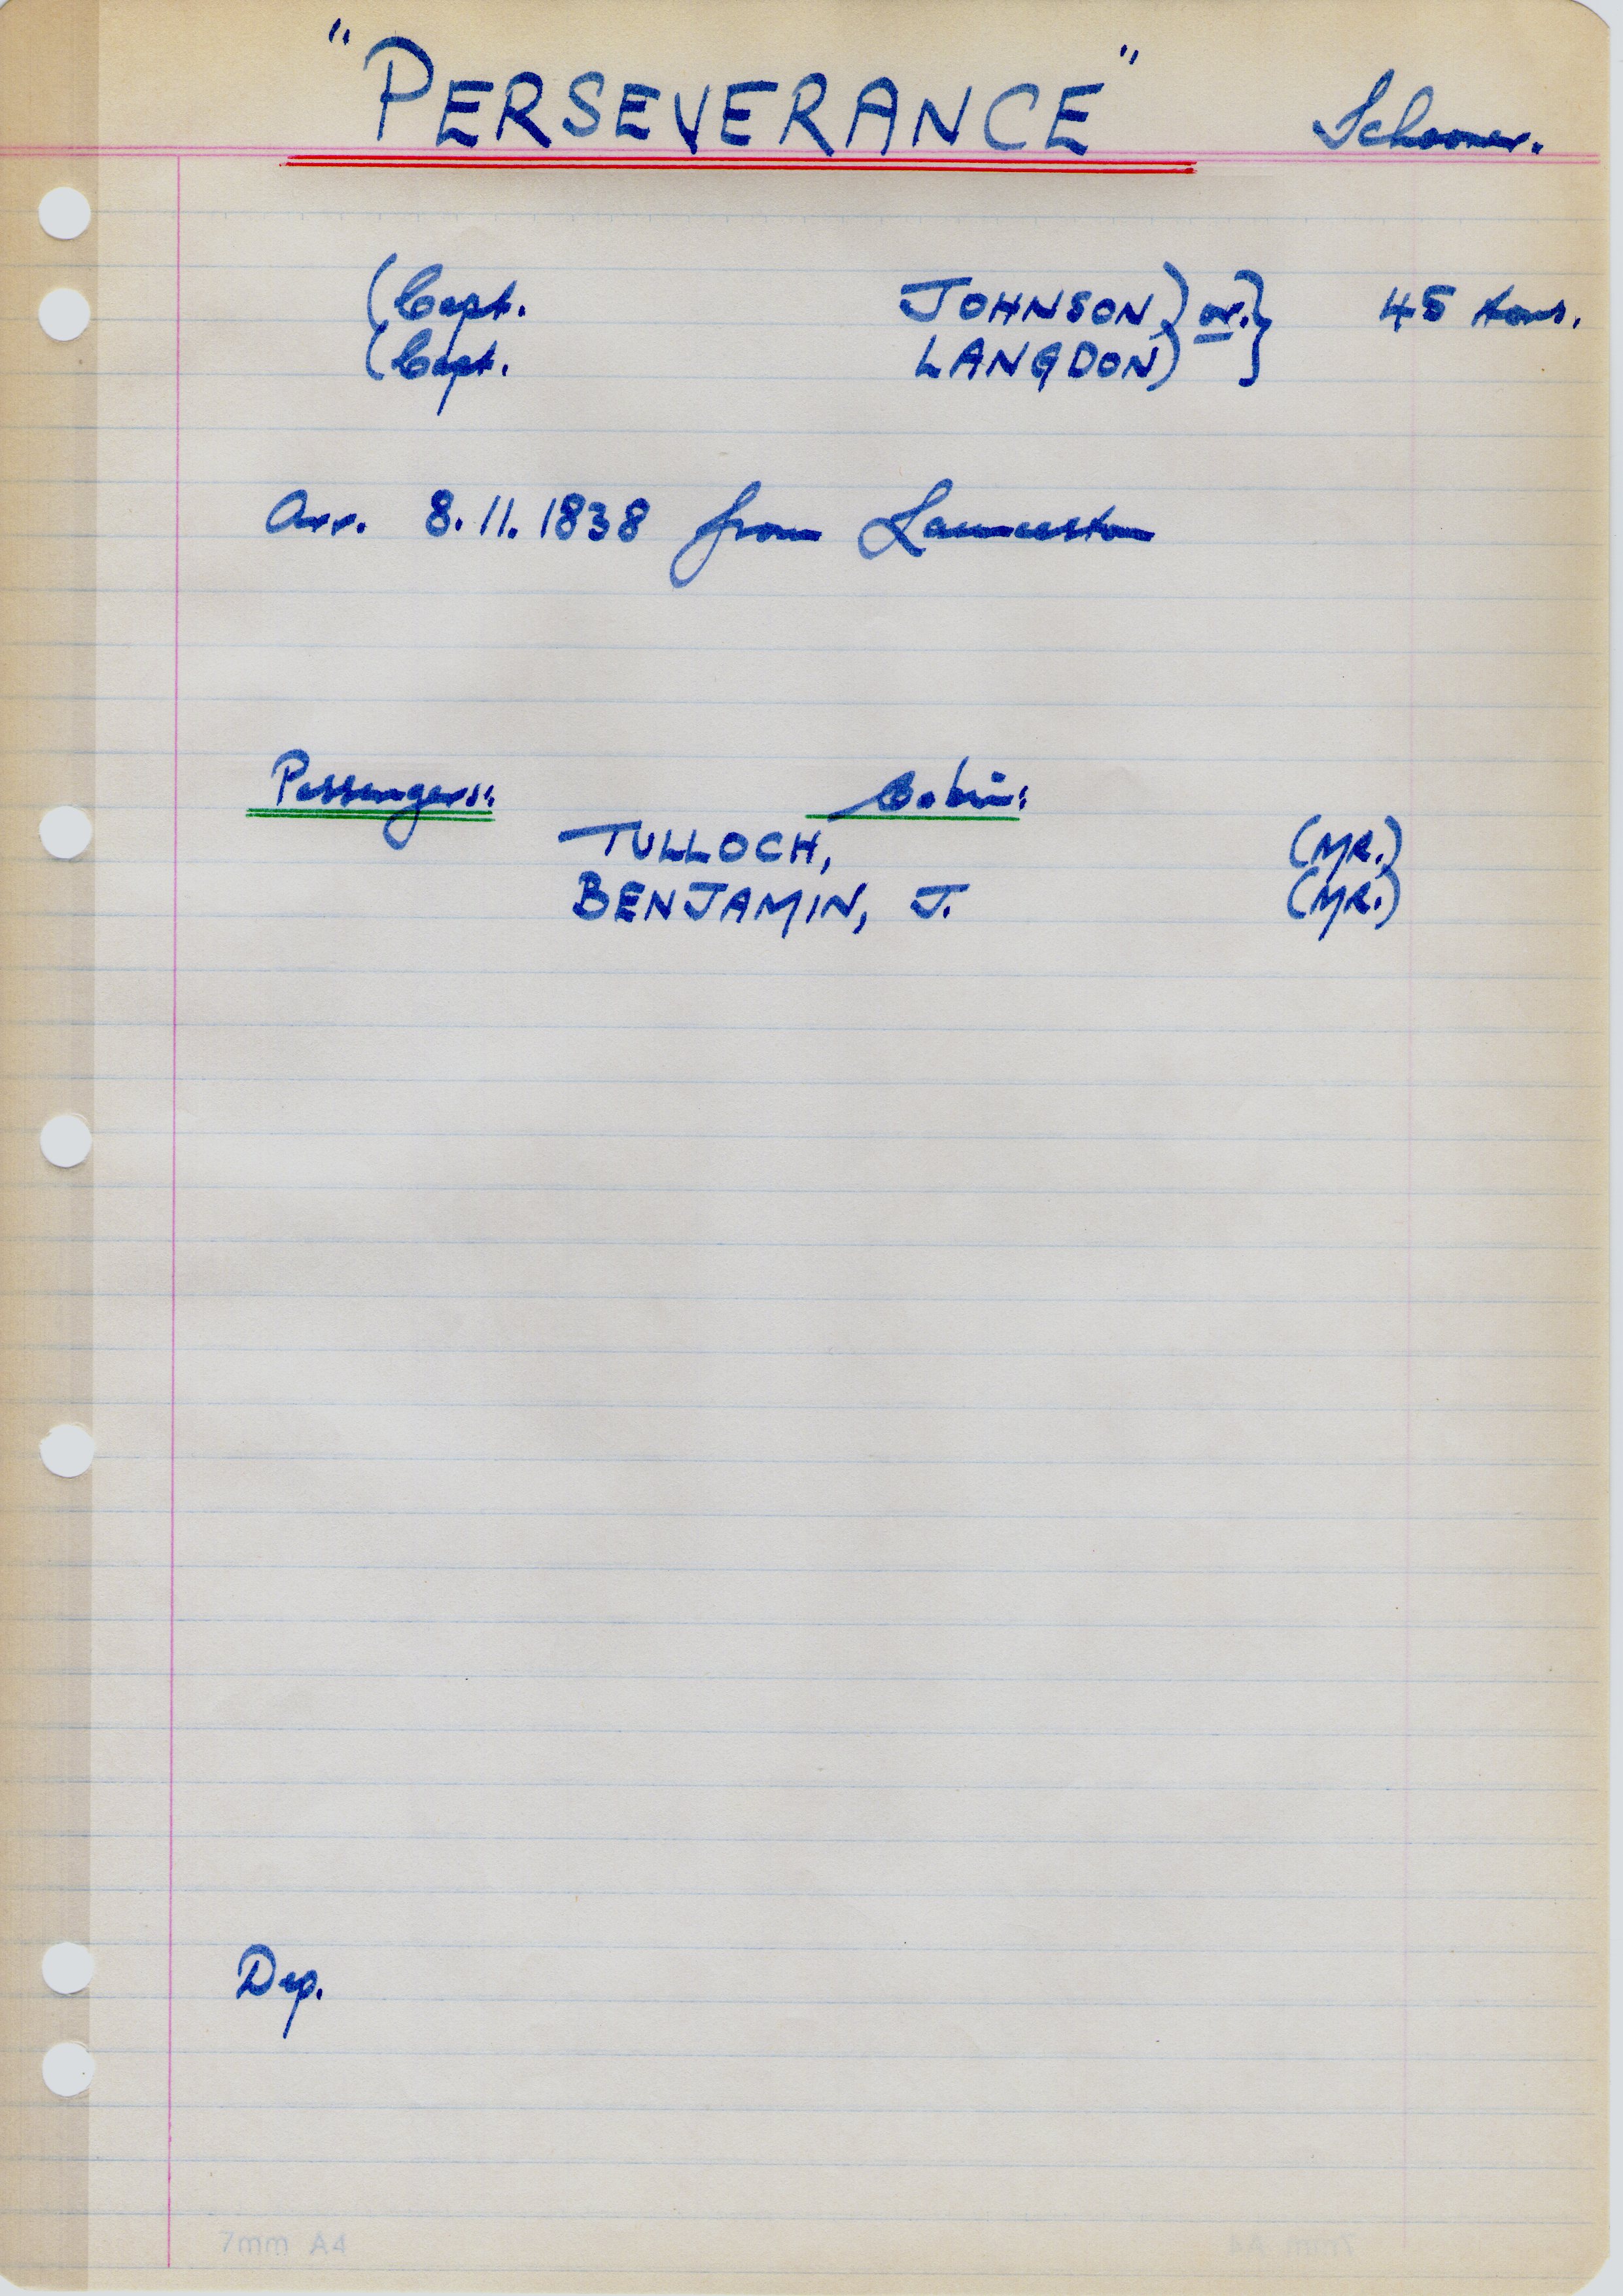 "PERSEVERANCE" Schooner.
(Capt. JOHNSON) or.} 45 tons.
(Capt. LANGDON) }
Arr. 8.11.1838 from Launceston
Passengers:. Cabin:
TULLOCH, (MR.)
BENJAMIN, J. (MR.)
Dep.
7mm A4